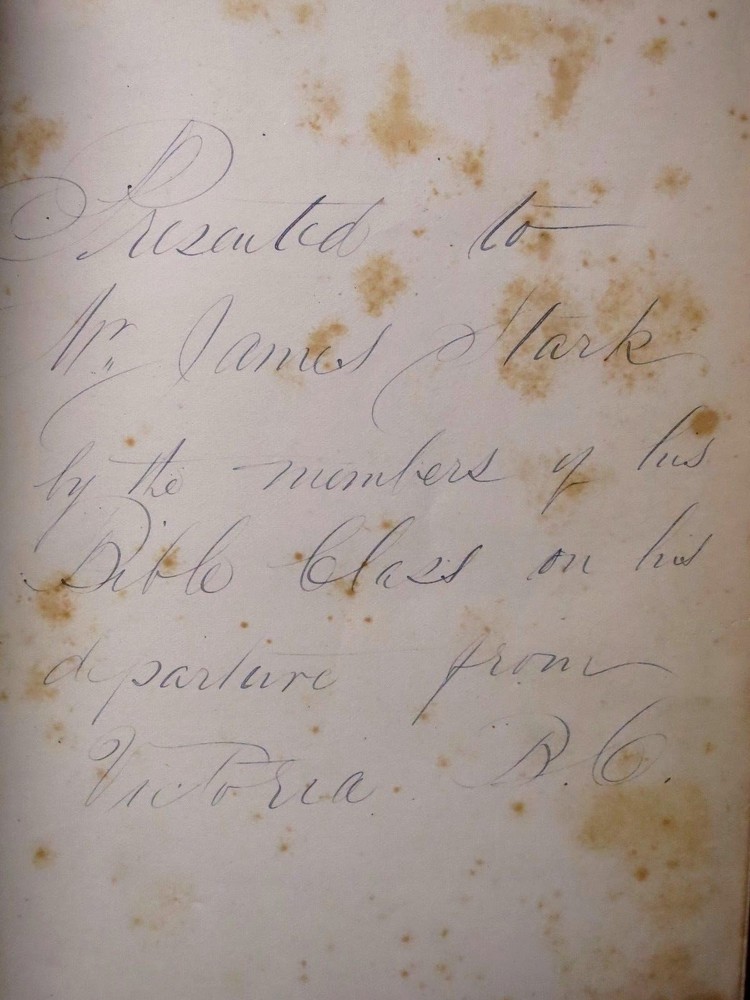 Presented to
Mr. James Stark
by the members of his
Bible Class on his
departure from
Victoria B.C.